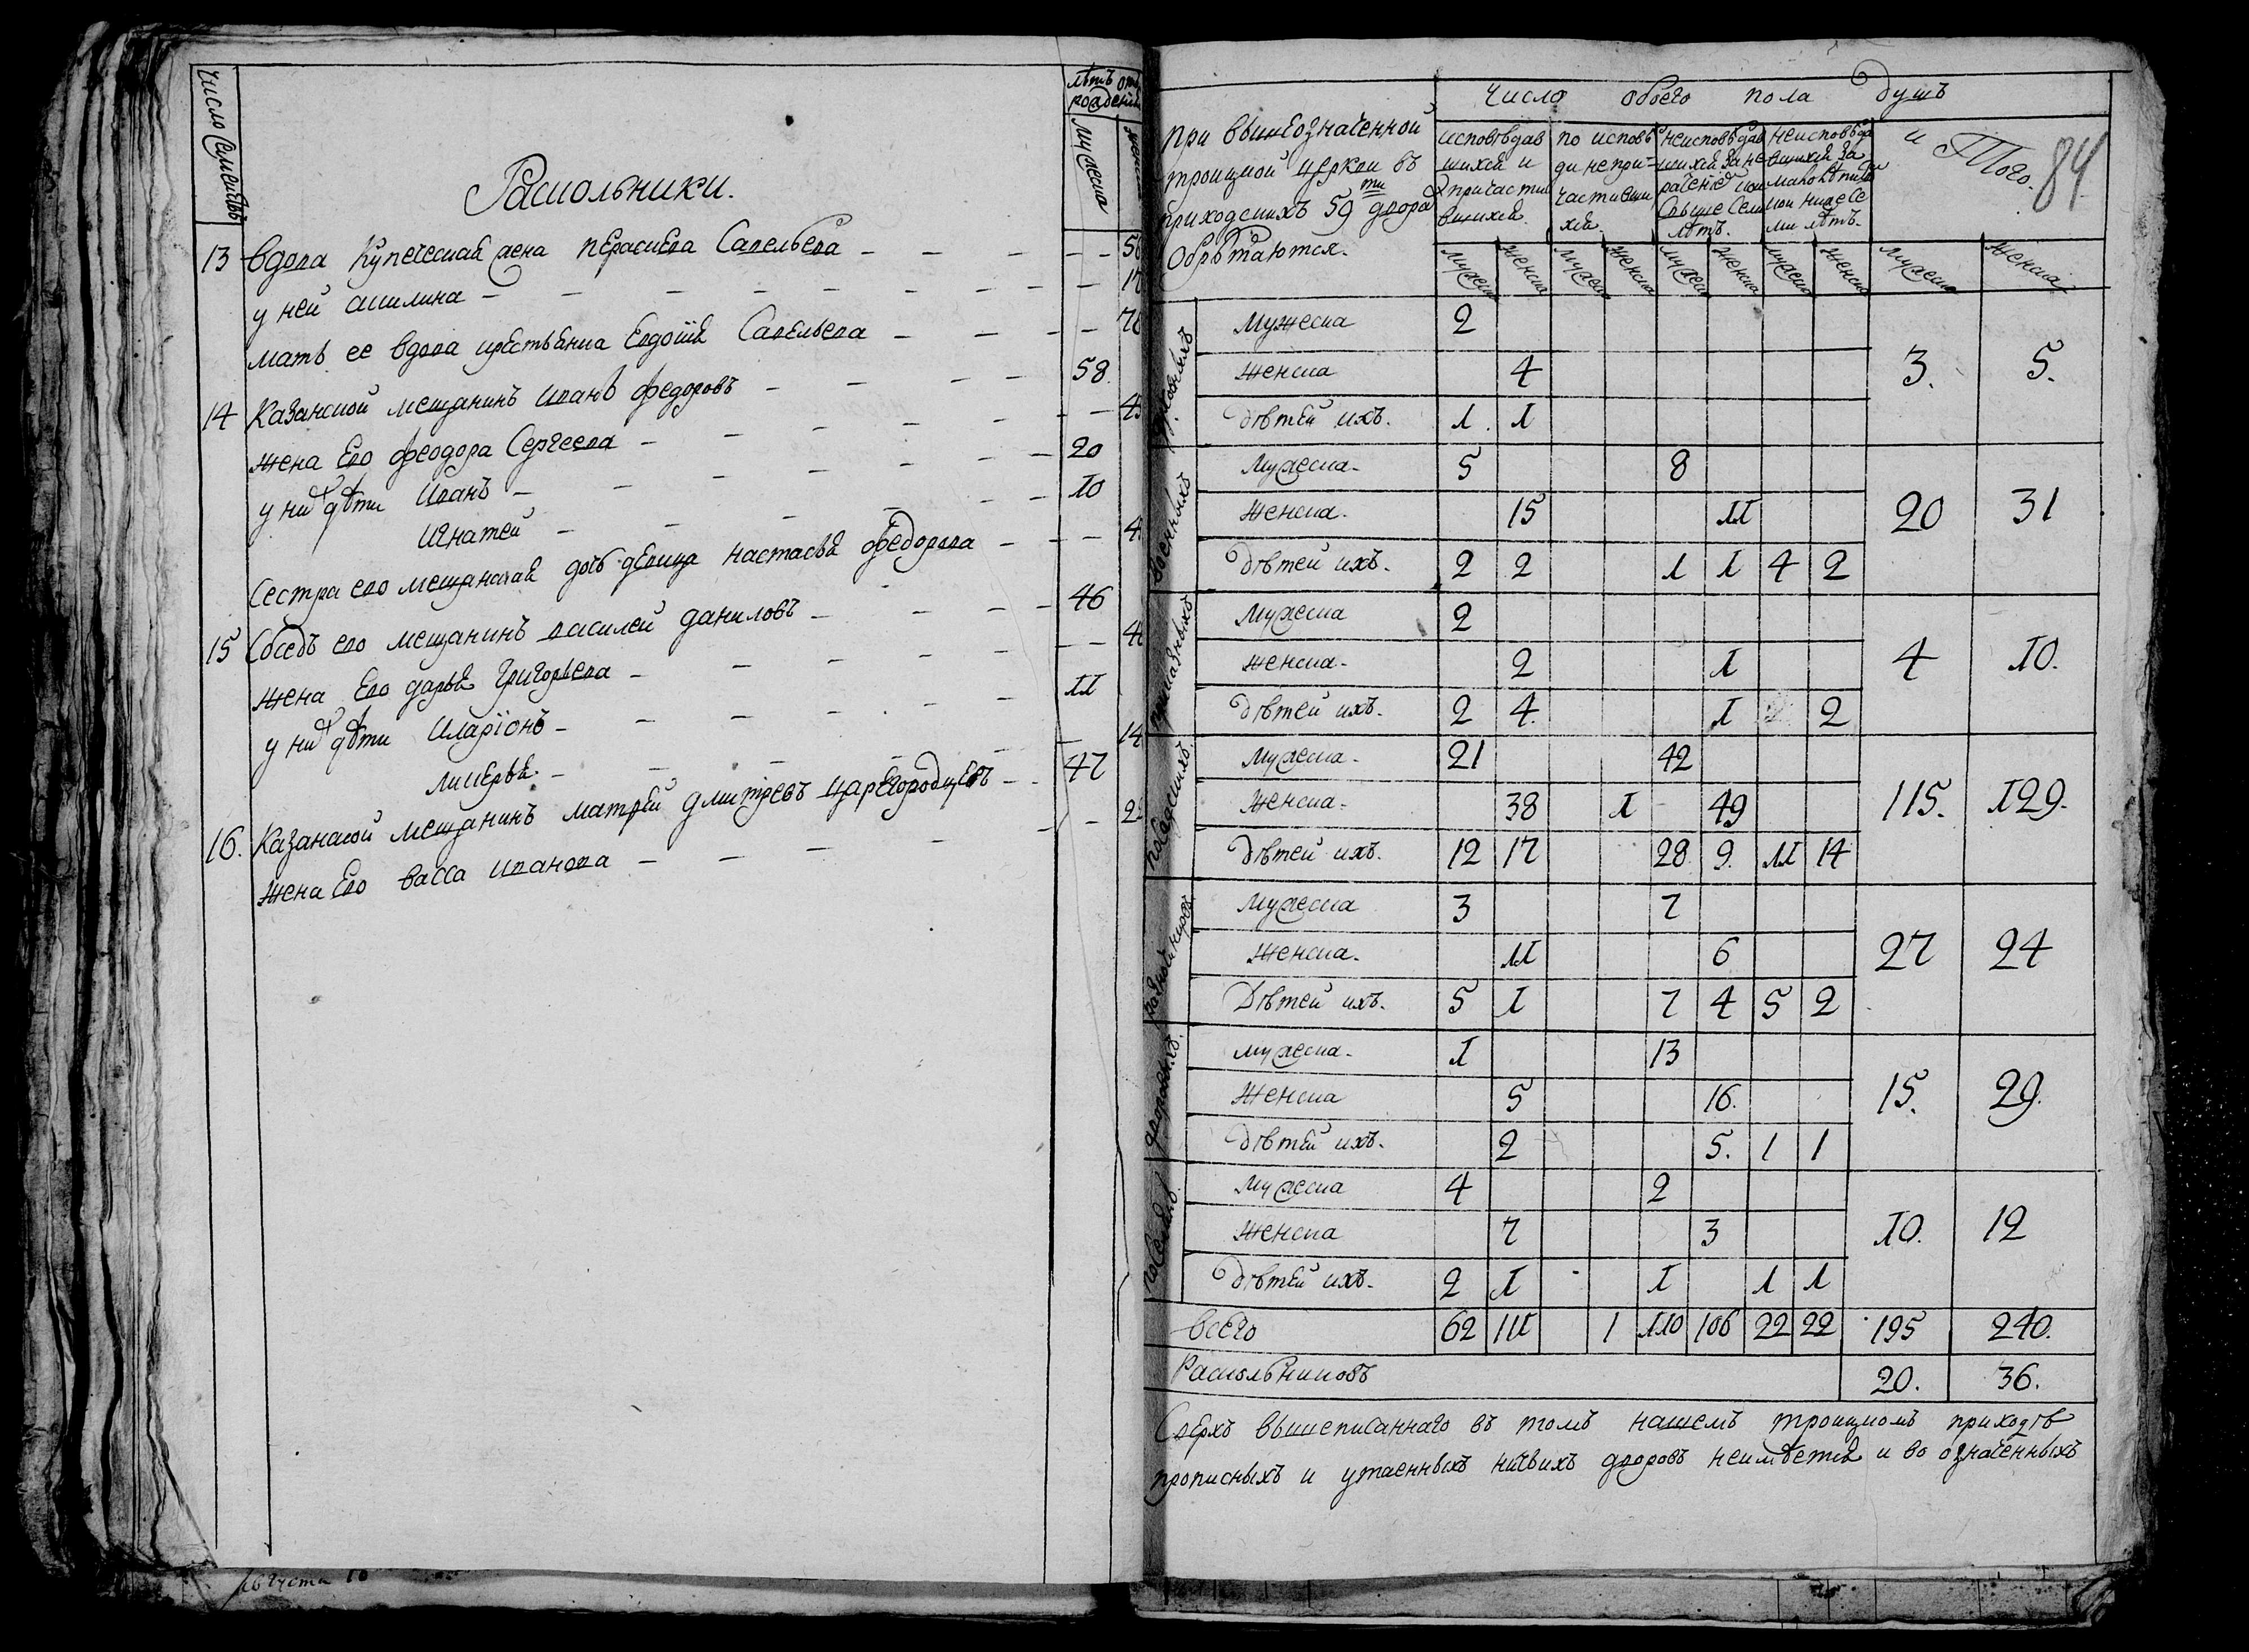 число семействъ
лѣтъ отъ рожденія
мужеска
Раскольники.
13 вдова купеческая жена Параскева Савельева
у ней Акилина
мать ее вдова крестьянка Евдокія Савельева
58.
14 Казанской мещанинъ Иванъ Федоровъ
жена его Феодора Сергеева
20
у них дѣти Иванъ
10
Игнатей
Сестра ево мещанская дочь девица Настасья Федорова
46
15 Соседъ ево мещанинъ Василей Даниловъ
жена Ево Дарья Григорьева
11
у них дѣти Иларіонъ
14
Ликерья
47
16. Казанской мещанинъ Матфей Дмитревъ Царегородцевъ
жена Ево Васса Иванова
84
число обоего пола душъ
при вышеозначенной
троицкой церкви въ
приходскихъ 59 ти двора
Обрѣтаются.
исповѣдав
шихся и
причасти
вшихся.
по исповѣ
ди не при-
частивши
хся.
неисповѣдав
шихся за не
раченіе
свыше семи
лѣтъ.
неисповѣда
вшихся за
малолѣт
ниже се
ми лѣтъ.
и Того.
мужеска женска мужеска женска мужеска женска мужеска женска мужеска женска
духовныхъ
Мужеска 2
женска 4 3. 5.
дѣтей ихъ. 1. 1
военныхъ
Мужеска 5 8
женска. 15 11 20 31
дѣтей ихъ. 2 2 1 1 4 2
приказныхъ
Мужеска 2
женска 2 1 4 10.
дѣтей ихъ. 2 4. 1 2
посадскихъ.
Мужеска 21 42
женска 38 1 49 115. 129.
дѣтей ихъ. 12 17 28 9. 11 14
разночинцовъ
Мужеска 3 7
женска. 11 6 27 24
Дѣтей ихъ. 5 1 7 4 5 2
дворовыхъ.
мужеска 1 13
женска 5 16. 15. 29.
дѣтей ихъ. 2 5. 1 1
Мужеска 4 2
женска 7 3 10. 12
дѣтей ихъ. 2 1 1 1 1
всего 62 111 1 110 106 22 22 195 240.
Раскольниковъ 20. 36.
Сверхъ вышеписаннаго въ томъ нашемъ троицкомъ приходѣ
прописныхъ и утаенныхъ ничьихъ дворовъ неимѣетца и во означенныхъ